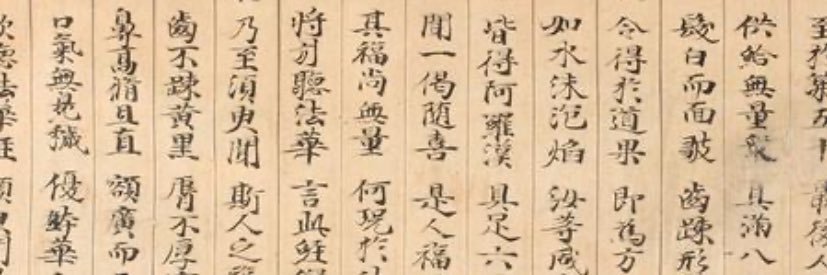 至於第五十 最後人
供給無量眾 具滿八
髮白而面皺 齒踈形
令得於道果 即為方
如水沫泡焰 汝等咸
皆得阿羅漢 具足六
聞一偈隨喜 是人福
其福尚無量 何況於
將引聽法華 言此經
乃至須臾聞 斯人之
齒不踈黃黑 脣不厚
鼻高脩且直 額廣而
口氣無臭穢 優鉢華
欲聽法華經 須臾聞